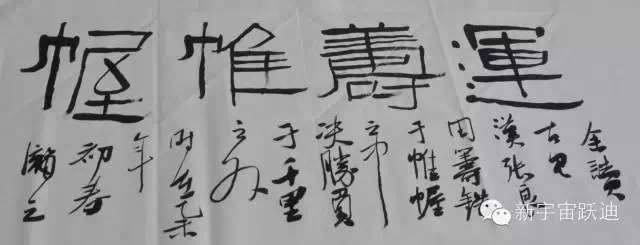 運籌帷幄
余讀
古見
漢張良
于帷幄
之中
決勝負
于千里
之外
時在乙未
年
初春
新宇宙跃迪